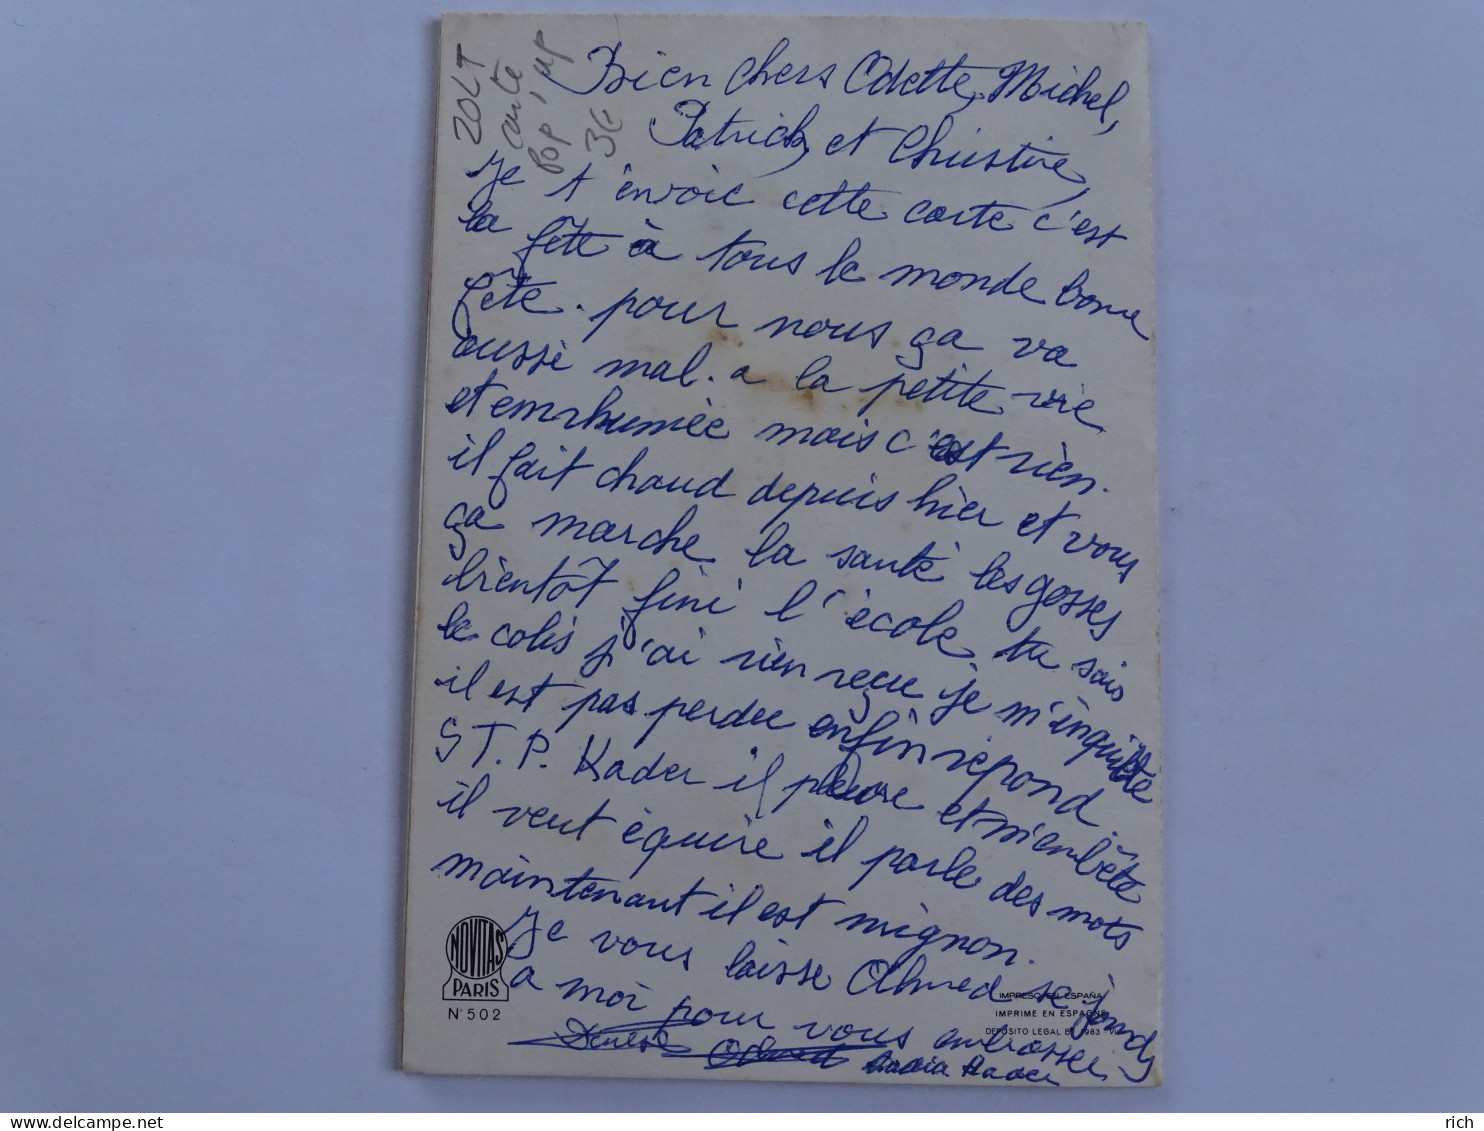 20LT
carte
pop, up
3€
Bien chers Odette, Michel,
Patrick, et Christine,
Je t'envoie cette carte c'est
la fête à tous le monde bonne
fête. pour nous ça va
aussi mal. a la petite vie
et emrhumée mais c'est rien.
il fait chaud depuis hier et vous
ça marche la santé les gosses
bientôt fini l'école, tu sais
le colis j'ai rien reçu je m'inquiète
il est pas perdu enfin répond
S T.P. Kader il pleure et m'embête
il veut équire il parle des mots
maintenant il est mignon.
Je vous laisse Ahmed se joinds
a moi pour vous embrasser
Denise Ahmed Nadia Kader
NOVITAS
PARIS
N° 502
IMPRESO EN ESPAÑA
IMPRIME EN ESPAGNE
DEPOSITO LEGAL B. 1983
rich